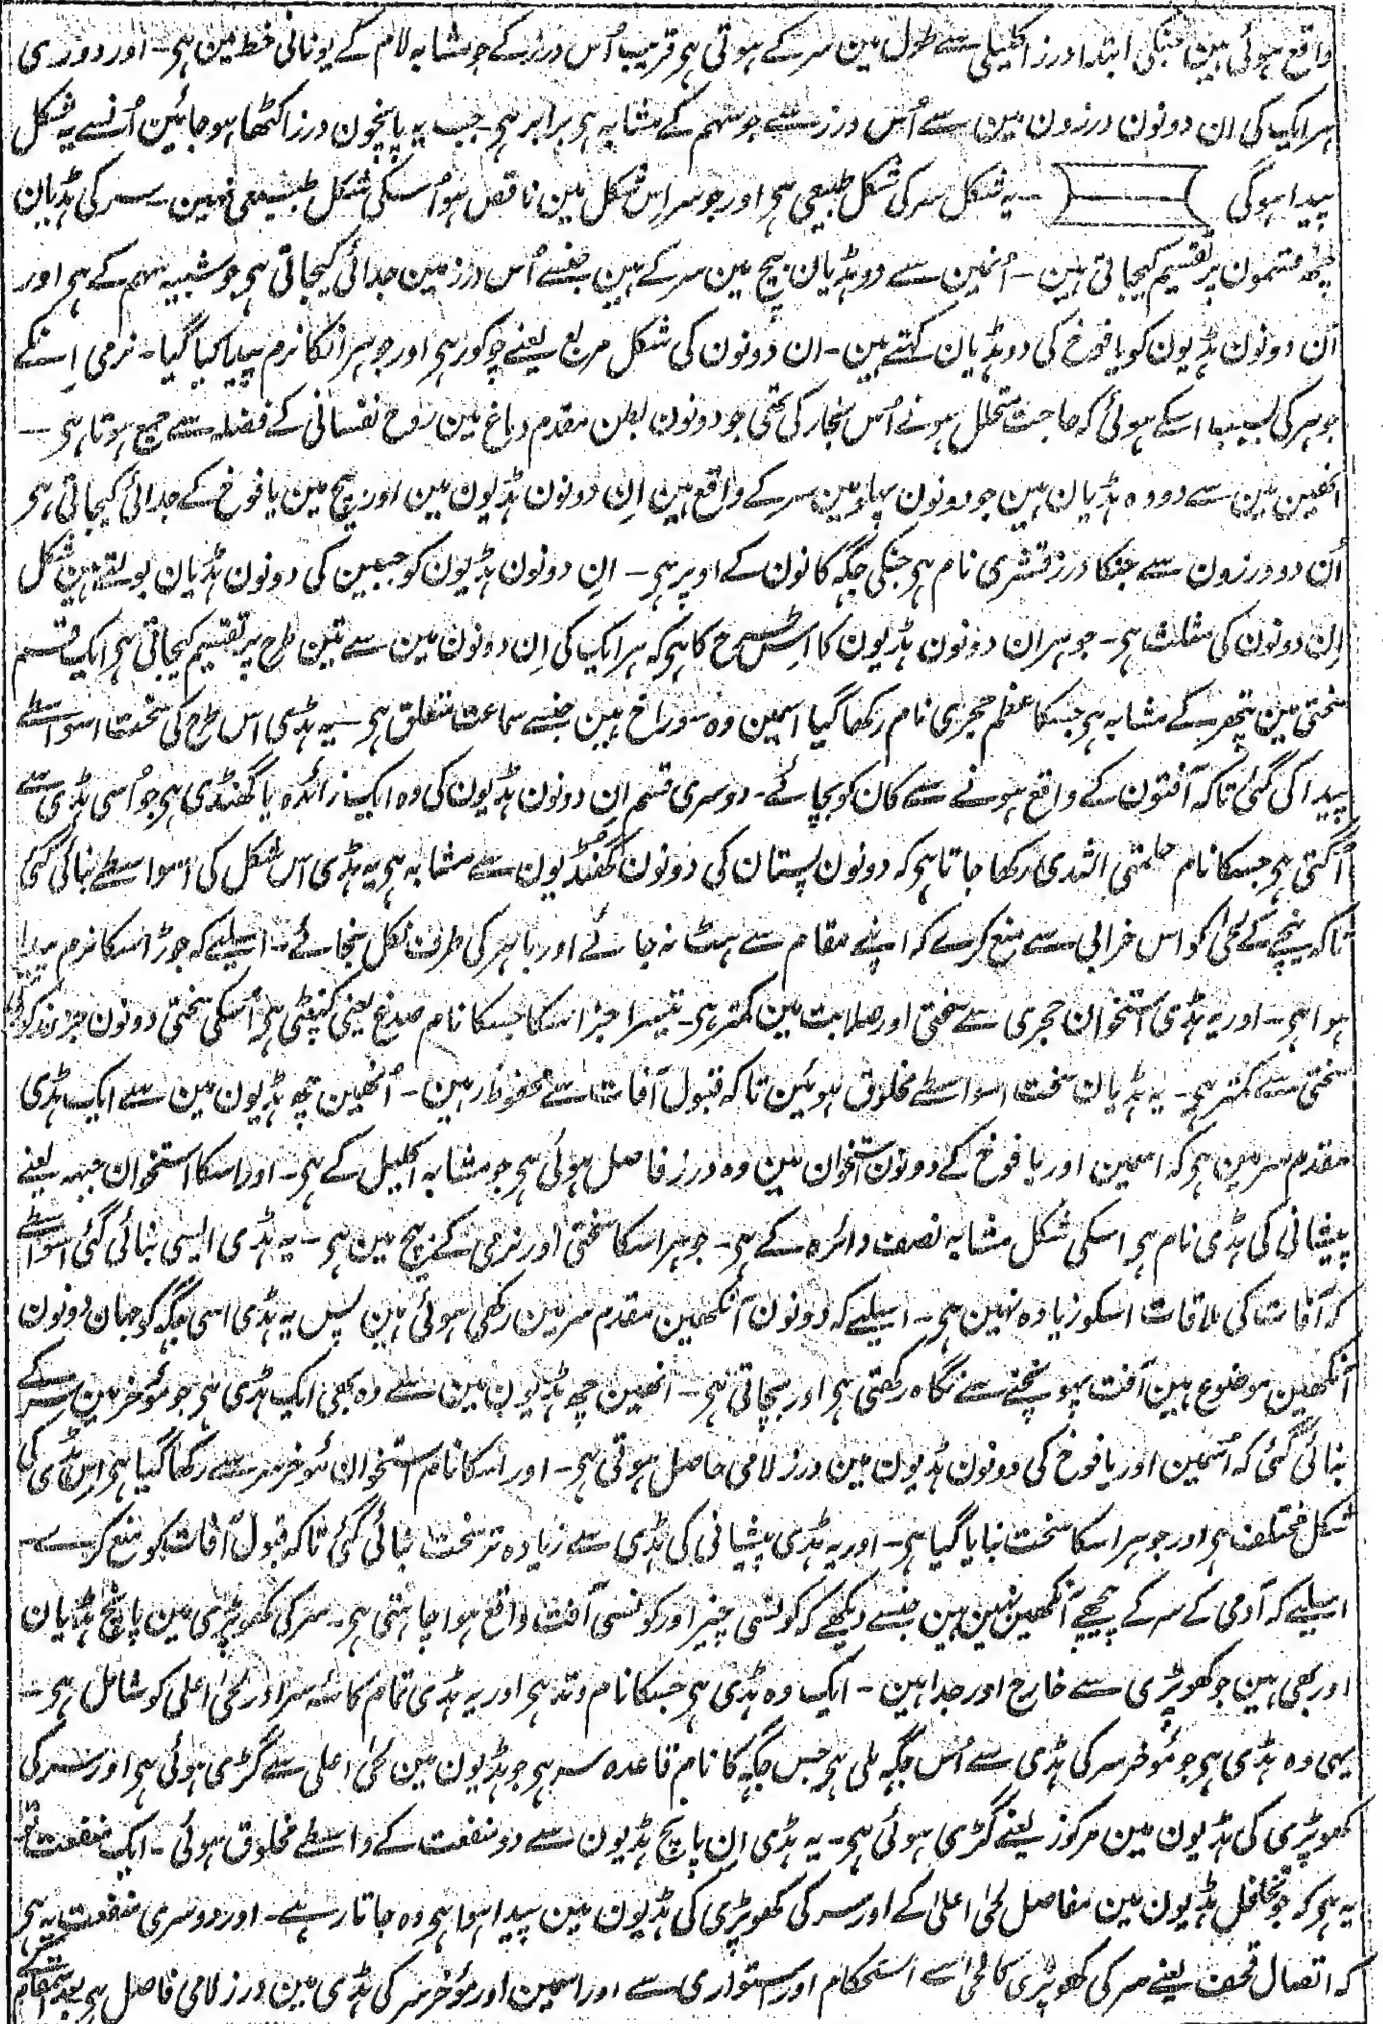 واقع ہوئی ہین جنکی ابتدا درز اکلیلی سے طول مین سر کے ہوتی ہی قریب اُس درز کے جو مشابہ لام کے یونانی خط مین ہی۔ اور دوری
ہر ایک کی ان دونون درزون مین سے اُس درز سے جو سہم کے مشابہ ہی برابر ہی۔ جب یہ پانچون درز اکٹھا ہو جائین اُنسے یہ شکل
پیدا ہوگی ۔ یہ شکل سر کی شکل طبیعی ہی اور جو سر اس شکل مین ناقص ہو اُسکی شکل طبیعی نہین۔ سر کی ہڈیان
چھ قسمون پر تقسیم کیجاتی ہین۔ اُنمین سے دو ہڈیان بیچ مین سر کے ہین جنسے اُس درز مین جدائی کیجاتی ہی جو شبیہ سہم کے ہی اور
ان دونون ہڈیون کو یافوخ کی دو ہڈیان کہتے ہین۔ ان دونون کی شکل مربع یعنے چوکور ہی اور جوہر انکا نرم پیدا کیا گیا۔ نرمی انکے
جوہر کی بسبب اسکے ہوئی کہ حاجت متحلل ہونے اُس بخار کی تھی جو دونون بطن مقدم دماغ مین روح نفسانی کے فضلہ سے جمع ہوتا ہی۔
انھین مین سے دو وہ ہڈیان ہین جو دونون پہلو مین سر کے واقع ہین اِن دونون ہڈیون مین اور بیچ مین یافوخ کے جدائی کیجاتی ہی
اُن دو درزون سے جنکا درز قشری نام ہی جنکی جگہ کانون کے اوپر ہی۔ اِن دونون ہڈیون کو جبین کی دونون ہڈیان بولتے ہین شکل
اِن دونون کی مثلث ہی۔ جوہر ان دونون ہڈیون کا اسطرح کا ہی کہ ہر ایک کی اِن دونون مین سے تین طرح پر تقسیم کیجاتی ہی ایک قسم
سختی مین پتھر کے مشابہ ہی جسکا عظم حجری نام رکھا گیا اسمین وہ سوراخ ہین جنسے سماعت متعلق ہی۔ یہ ہڈی اس طرح کی سخت اسواسطے
پیدا کی گئی تاکہ آفتون کے واقع ہونے سے کان کو بچائے۔ دوسری قسم اِن دونون ہڈیون کی وہ ایک زائدہ یا گھنڈی ہی جو اُسی ہڈی سے
اُگتی ہی جسکا نام حلمتی الثدی رکھا جاتا ہی کہ دونون پستان کی دونون گھنڈیون سے مشابہ ہی یہ ہڈی اس شکل کی اسواسطے بنائی گئی
تاکہ نیچے کے لحیٰ کو اس خرابی سے منع کرے کہ اپنے مقام سے ہٹا نہ جائے اور باہر کی طرف نکل نجائے۔ اسلیے کہ جوڑ اسکا نرم پیدا
ہوا ہی۔ اور یہ ہڈی استخوان حجری سے سختی اور صلابت مین کمتر ہی۔ تیسرا جز اسکا جسکا نام صدغ یعنی کنپٹی ہی اُسکی سختی دونون جزو مذکور کی
سختی سے کمتر ہی۔ یہ ہڈیان سخت اسواسطے مخلوق ہوئین تاکہ قبول آفات سے محفوظ رہین۔ اُنھین چھ ہڈیون مین سے ایک ہڈی
مقدم سر مین ہی کہ اسمین اور یافوخ کے دونون استخوان مین وہ درز فاصل ہوئی ہی جو مشابہ اکلیل کے ہی۔ اور اسکا استخوان جبہہ یعنے
پیشانی کی ہڈی نام ہی اسکی شکل مشابہ نصف دائرہ کے ہی۔ جوہر اسکا سختی اور نرمی کے بیچ مین ہی۔ یہ ہڈی ایسی بنائی گئی اسواسطے
کہ آفات کی ملاقات اسکو زیادہ نہین ہی۔ اسلیے کہ دونون آنکھین مقدم سر مین رکھی ہوئی ہین پس یہ ہڈی اسی جگہ کو جہان دونون
آنکھین موضوع ہین آفت پہونچنے سے نگاہ رکھتی ہی اور بچاتی ہی۔ انھین چھ ہڈیون مین سے وہ بھی ایک ہڈی ہی جو مؤخر مین سر کے
بنائی گئی کہ اُسمین اور یافوخ کی دونون ہڈیون مین درز لامی حاصل ہوتی ہی۔ اور اسکا نام استخوان مؤخر سر سے رکھا گیا ہی اِس ہڈی کی
شکل مختلف ہی اور جوہر اسکا سخت بنایا گیا ہی۔ اور یہ ہڈی پیشانی کی ہڈی سے زیادہ تر سخت بنائی گئی تاکہ قبول آفات کو منع کرے۔
اسلیے کہ آدمی کے سر کے پیچھے آنکھین نہین ہین جنسے دیکھے کہ کونسی چیز اور کونسی آفت واقع ہوا چاہتی ہی۔ سر کی کھوپڑی مین پانچ ہڈیان
اور بھی ہین جو کھوپڑی سے خارج اور جدا ہین۔ ایک وہ ہڈی ہی جسکا نام وتد ہی اور یہ ہڈی تمام کاسۂ سر اور لحیٰ اعلی کو شامل ہی۔
یہی وہ ہڈی ہی جو مؤخر سر کی ہڈی سے اُس جگہ ملی ہی جس جگہ کا نام قاعدہ سر ہی جو ہڈیون مین لحیٰ اعلی سے گڑی ہوئی ہی اور سر کی
کھوپڑی کی ہڈیون مین مرکوز یعنے گڑی ہوئی ہی۔ یہ ہڈی اِن پانچ ہڈیون سے دو منفعت کے واسطے مخلوق ہوئی۔ ایک منفعت تو
یہ ہی کہ جو تخلخل ہڈیون مین مفاصل لحیٰ اعلیٰ کے اور سر کی کھوپڑی کی ہڈیون مین پیدا ہوا ہی وہ جاتا رہے۔ اور دوسری منفعت یہ ہی
کہ اتصال قحف یعنے سر کی کھوپڑی کا لحیٰ سے استحکام اور استواری سے اور اسمین اور مؤخر سر کی ہڈی مین درز لامی فاصل ہی بعد